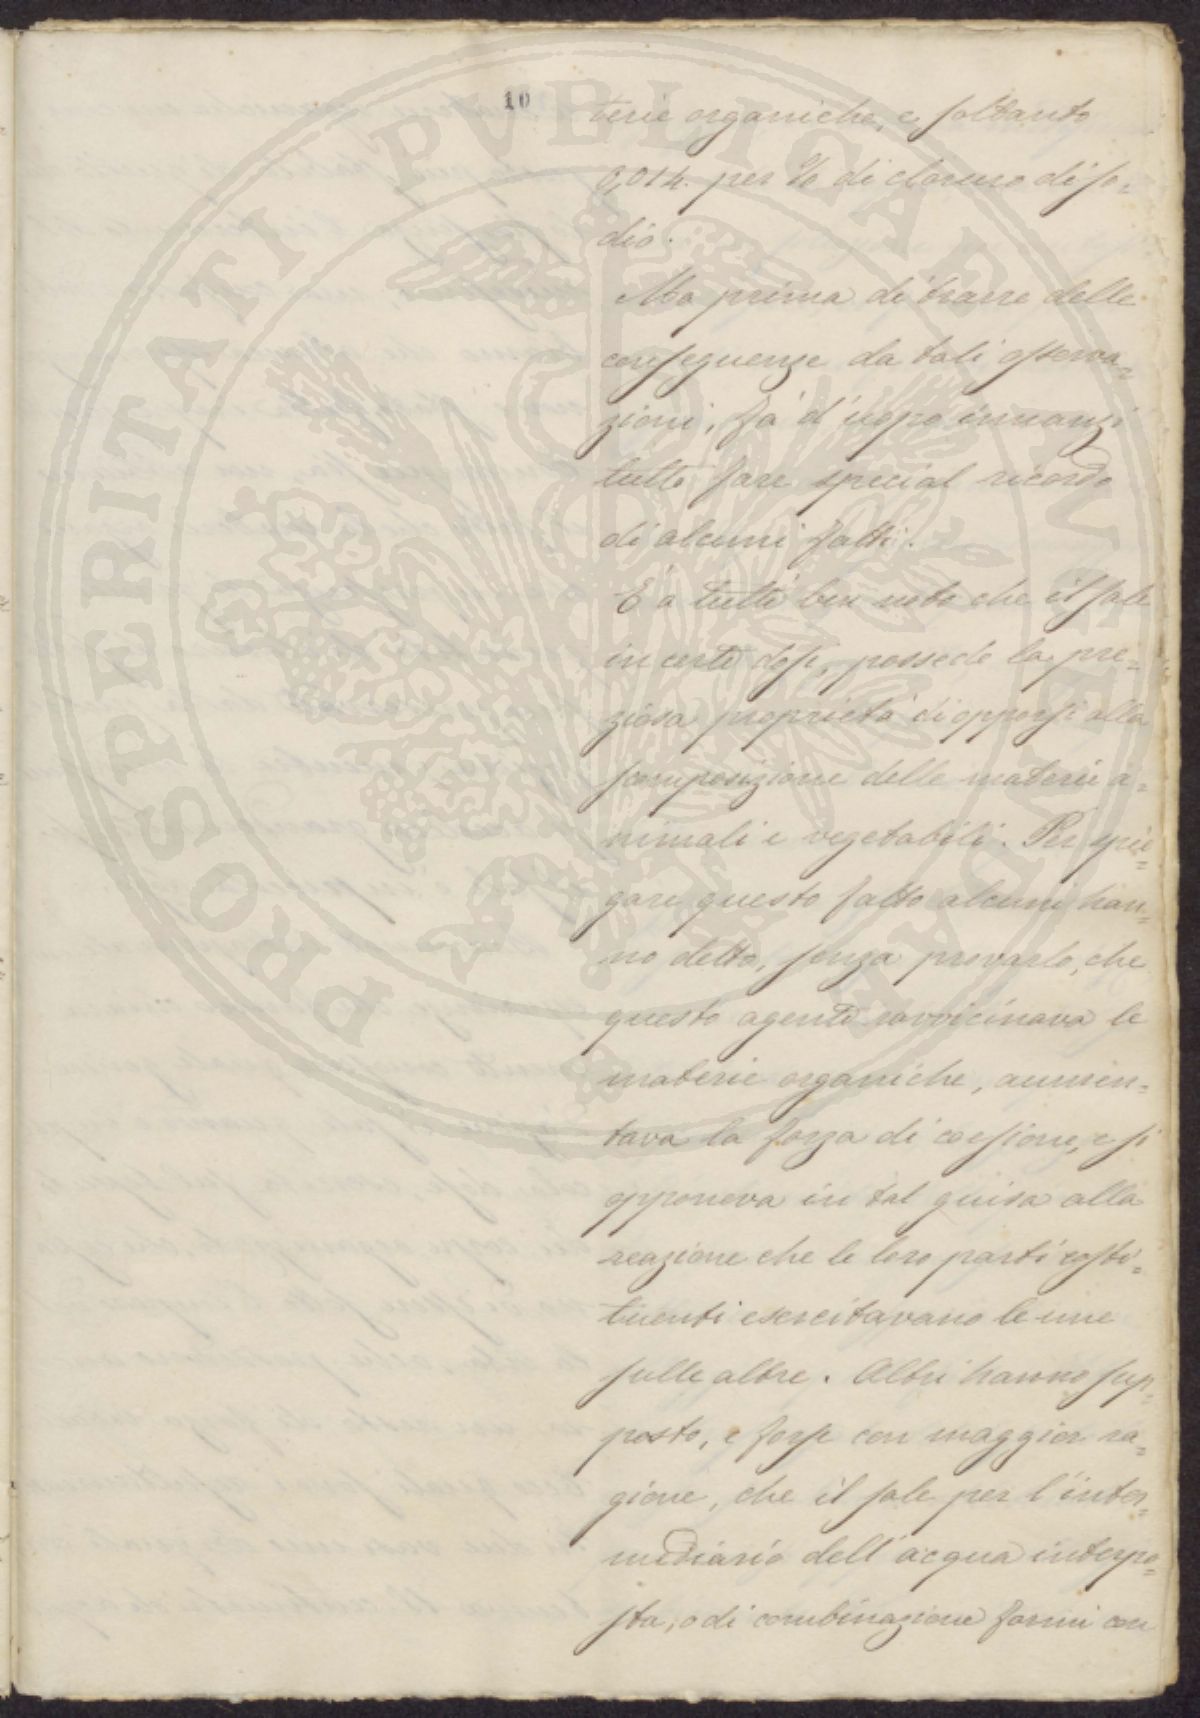 10
terie organiche, e soltanto
0,014. per % di cloruro di so=
dio.
Ma prima di trarre delle
conseguenze da tali osserva=
zioni, fa d'uopo innanzi
tutto fare special ricordo
di alcuni fatti.
E' a tutti ben noto che il sale
in certe dosi, possede la pre=
ziosa proprietà di opporsi alla
scomposizione delle materie a=
nimali e vegetabili. Per spie=
gare questo fatto alcuni han=
no detto, senza provarlo, che
questo agente ravvicinava le
materie organiche, aumen=
tava la forza di coesione, e si
opponeva in tal guisa alla
reazione che le loro parti costi=
tuenti esercitavano le une
sulle altre. Altri hanno sup=
posto, e forse con maggior ra=
gione, che il sale per l'inter=
mediario dell'acqua interpo=
sta, o di combinazione formi con
PROSPERITATI PVBLICAE AVGENDAE